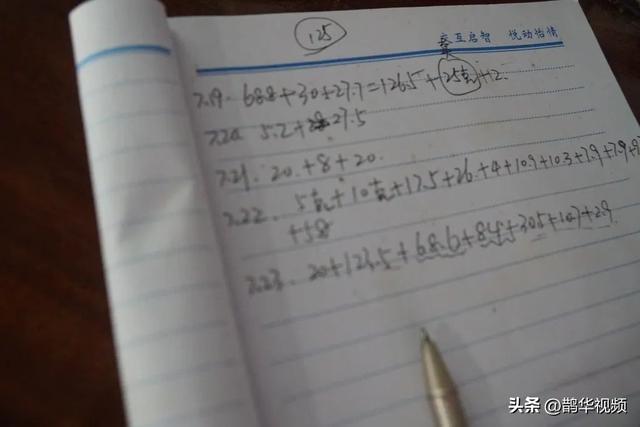 125
互启智 悦动怡情
7.19. 68.8+30+27.7=126.5+25克+12.
7.20 5.2+27.5
7.21. 20.+8+20.
7.22. 5克+10克+17.5+26.+4+10.9+10.3+7.9+7.9+
+58
7.23. 20+123.5+68.6+84+305+10.7+2.9
头条 @鹊华视频